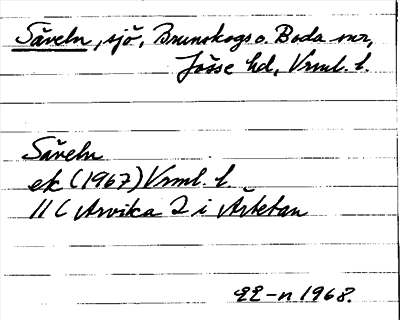 Säveln, sjö, Brunskogs o. Boda snr,
Jösse hd, Vrml. l.
Säveln
ek (1967) Vrml. l.
11 C Arvika
1968.